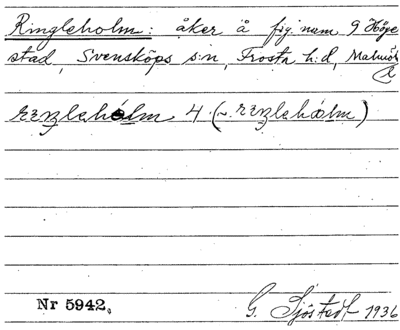 Ringleholm: åker å fig. num 9 Höge
stad, Svensköps s:n, Frosta h:d, Malmöh
l.
rɪŋləhólm 4 (~ rɪŋləhòlm)
Nr 5942.
G. Sjöstedt 1936